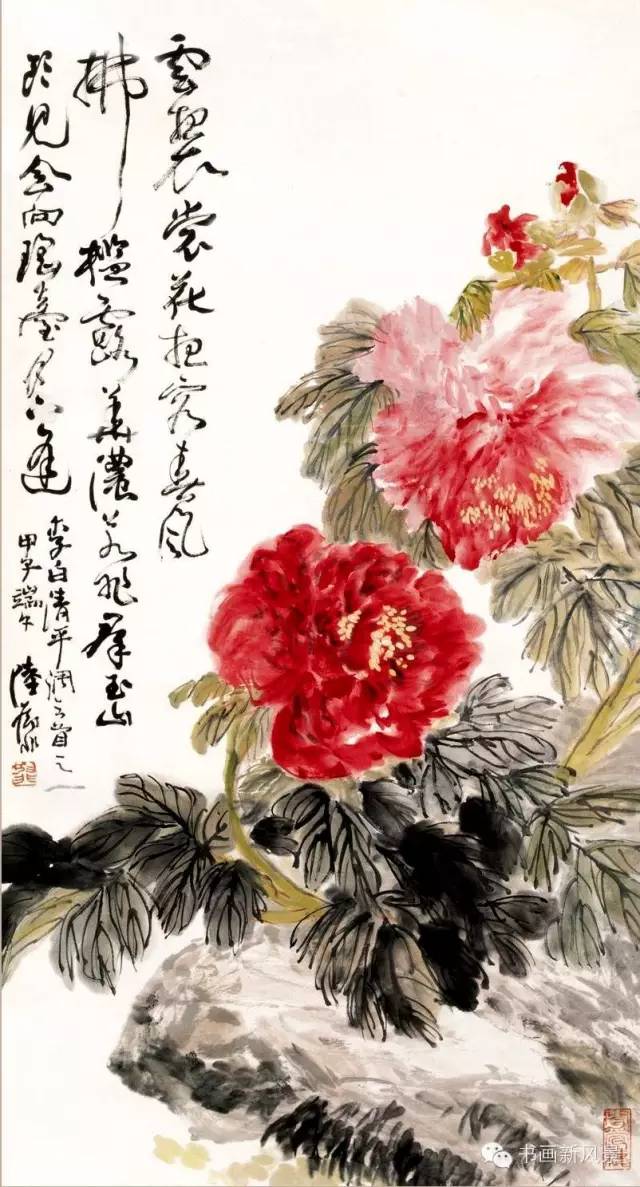 雲想衣裳花想容春風
拂檻露華濃若非羣玉山
頭見會向瑤臺月下逢
李白清平調三首之一
甲子端午 陸抑非
书画新风景